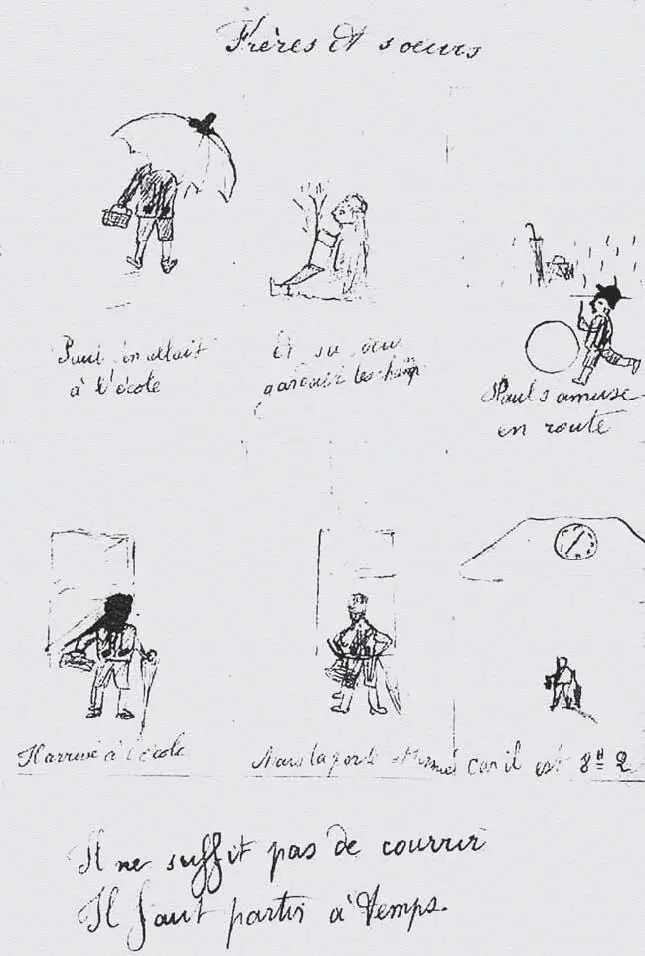 Frères et soeurs
Paul s'en allait
à l'école
Et sa soeur
les champ
Paul s'amuse
en route
Il arrive à l'école
Mais la porte fermée car il est 8H 2
Il ne suffit pas de courrir
Il faut partir à temps.